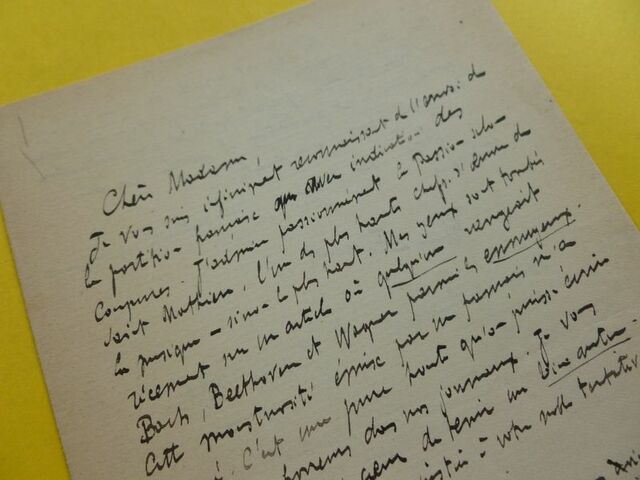 Chère Madame,
Je vous suis infiniment reconnaissant de l'envoi de
la partition française avec indication des
coupures. J'admire passionnément la Passion selon
Saint Mathieu. L'un des plus hauts chefs-d'œuvre de
la musique - sinon le plus haut. Mes yeux sont tombés
récemment sur un article où quelqu'un rangeait
Bach, Beethoven et Wagner parmi les ennuyeux.
Cette monstruosité émise par un
C'est une pure honte qu'on puisse écrire
dans nos journaux. Je vous
de tenir un
à votre noble